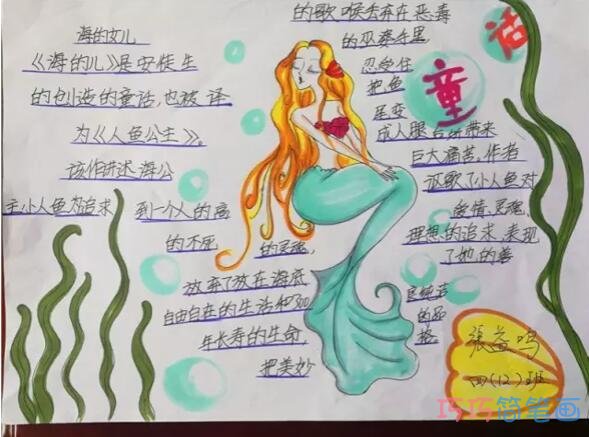 海的女儿
《海的儿》是安徒生
的创造的童话,也被译
为《人鱼公主》。
该作讲述海公
主小人鱼为追求 到一个人的高
的不死 的灵魂,
放弃了放在海底
自由自在的生活和300
年长寿的生命,
把美妙
的歌喉丢弃在恶毒
的巫婆手里,
忍受住
把鱼
尾变
成人腿后所带来
巨大痛苦,作者
讴歌了小人鱼对
爱情、灵魂、
理想的追求,表现
了她的善
良纯洁
的品
格。
童话
張益鸣
四(12)班
巧巧简笔画